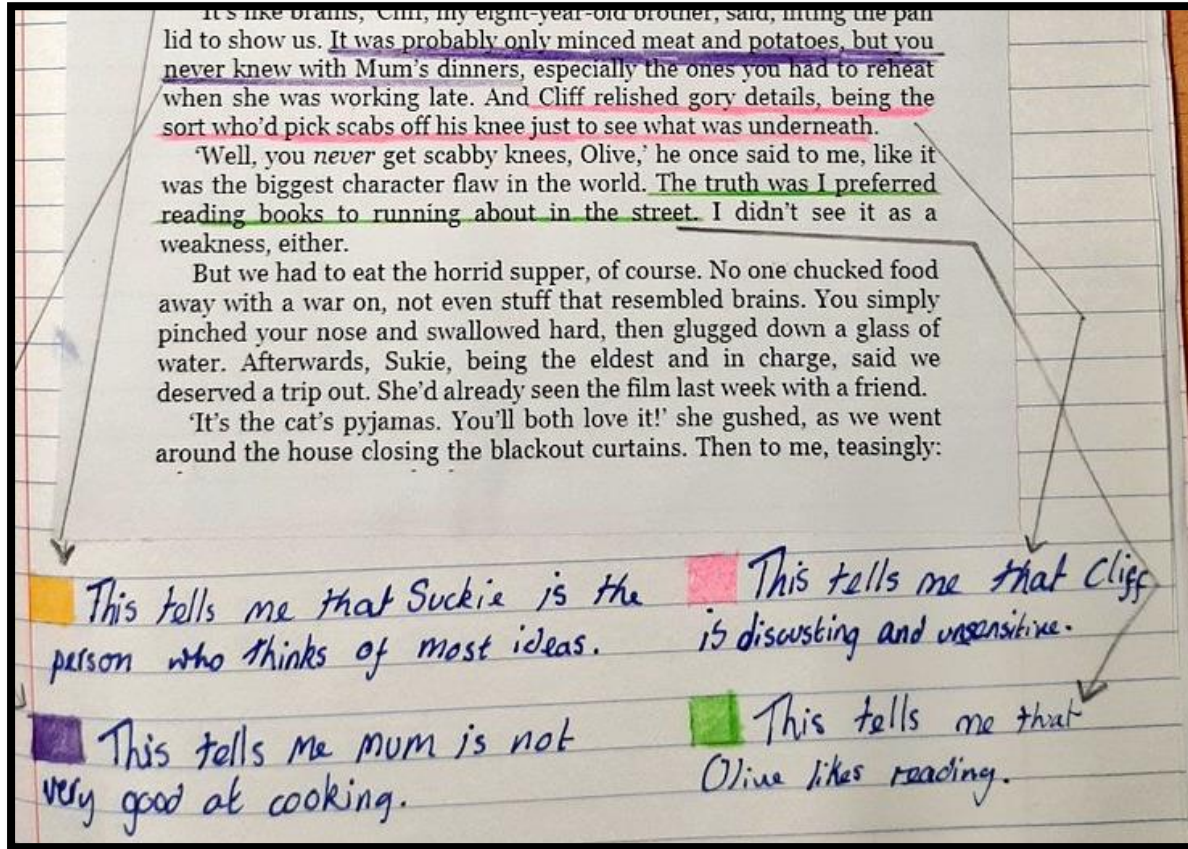 It's like brains,' Cliff, my eight-year-old brother, said, lifting the pan
lid to show us. It was probably only minced meat and potatoes, but you
never knew with Mum's dinners, especially the ones you had to reheat
when she was working late. And Cliff relished gory details, being the
sort who'd pick scabs off his knee just to see what was underneath.
'Well, you never get scabby knees, Olive,' he once said to me, like it
was the biggest character flaw in the world. The truth was I preferred
reading books to running about in the street. I didn't see it as a
weakness, either.
But we had to eat the horrid supper, of course. No one chucked food
away with a war on, not even stuff that resembled brains. You simply
pinched your nose and swallowed hard, then glugged down a glass of
water. Afterwards, Sukie, being the eldest and in charge, said we
deserved a trip out. She'd already seen the film last week with a friend.
'It's the cat's pyjamas. You'll both love it!' she gushed, as we went
around the house closing the blackout curtains. Then to me, teasingly:
This tells me that Suckie is the
person who thinks of most ideas.
This tells me that Cliff
is discusting and unsensitive.
This tells me mum is not
very good at cooking.
This tells me that
Olive likes reading.